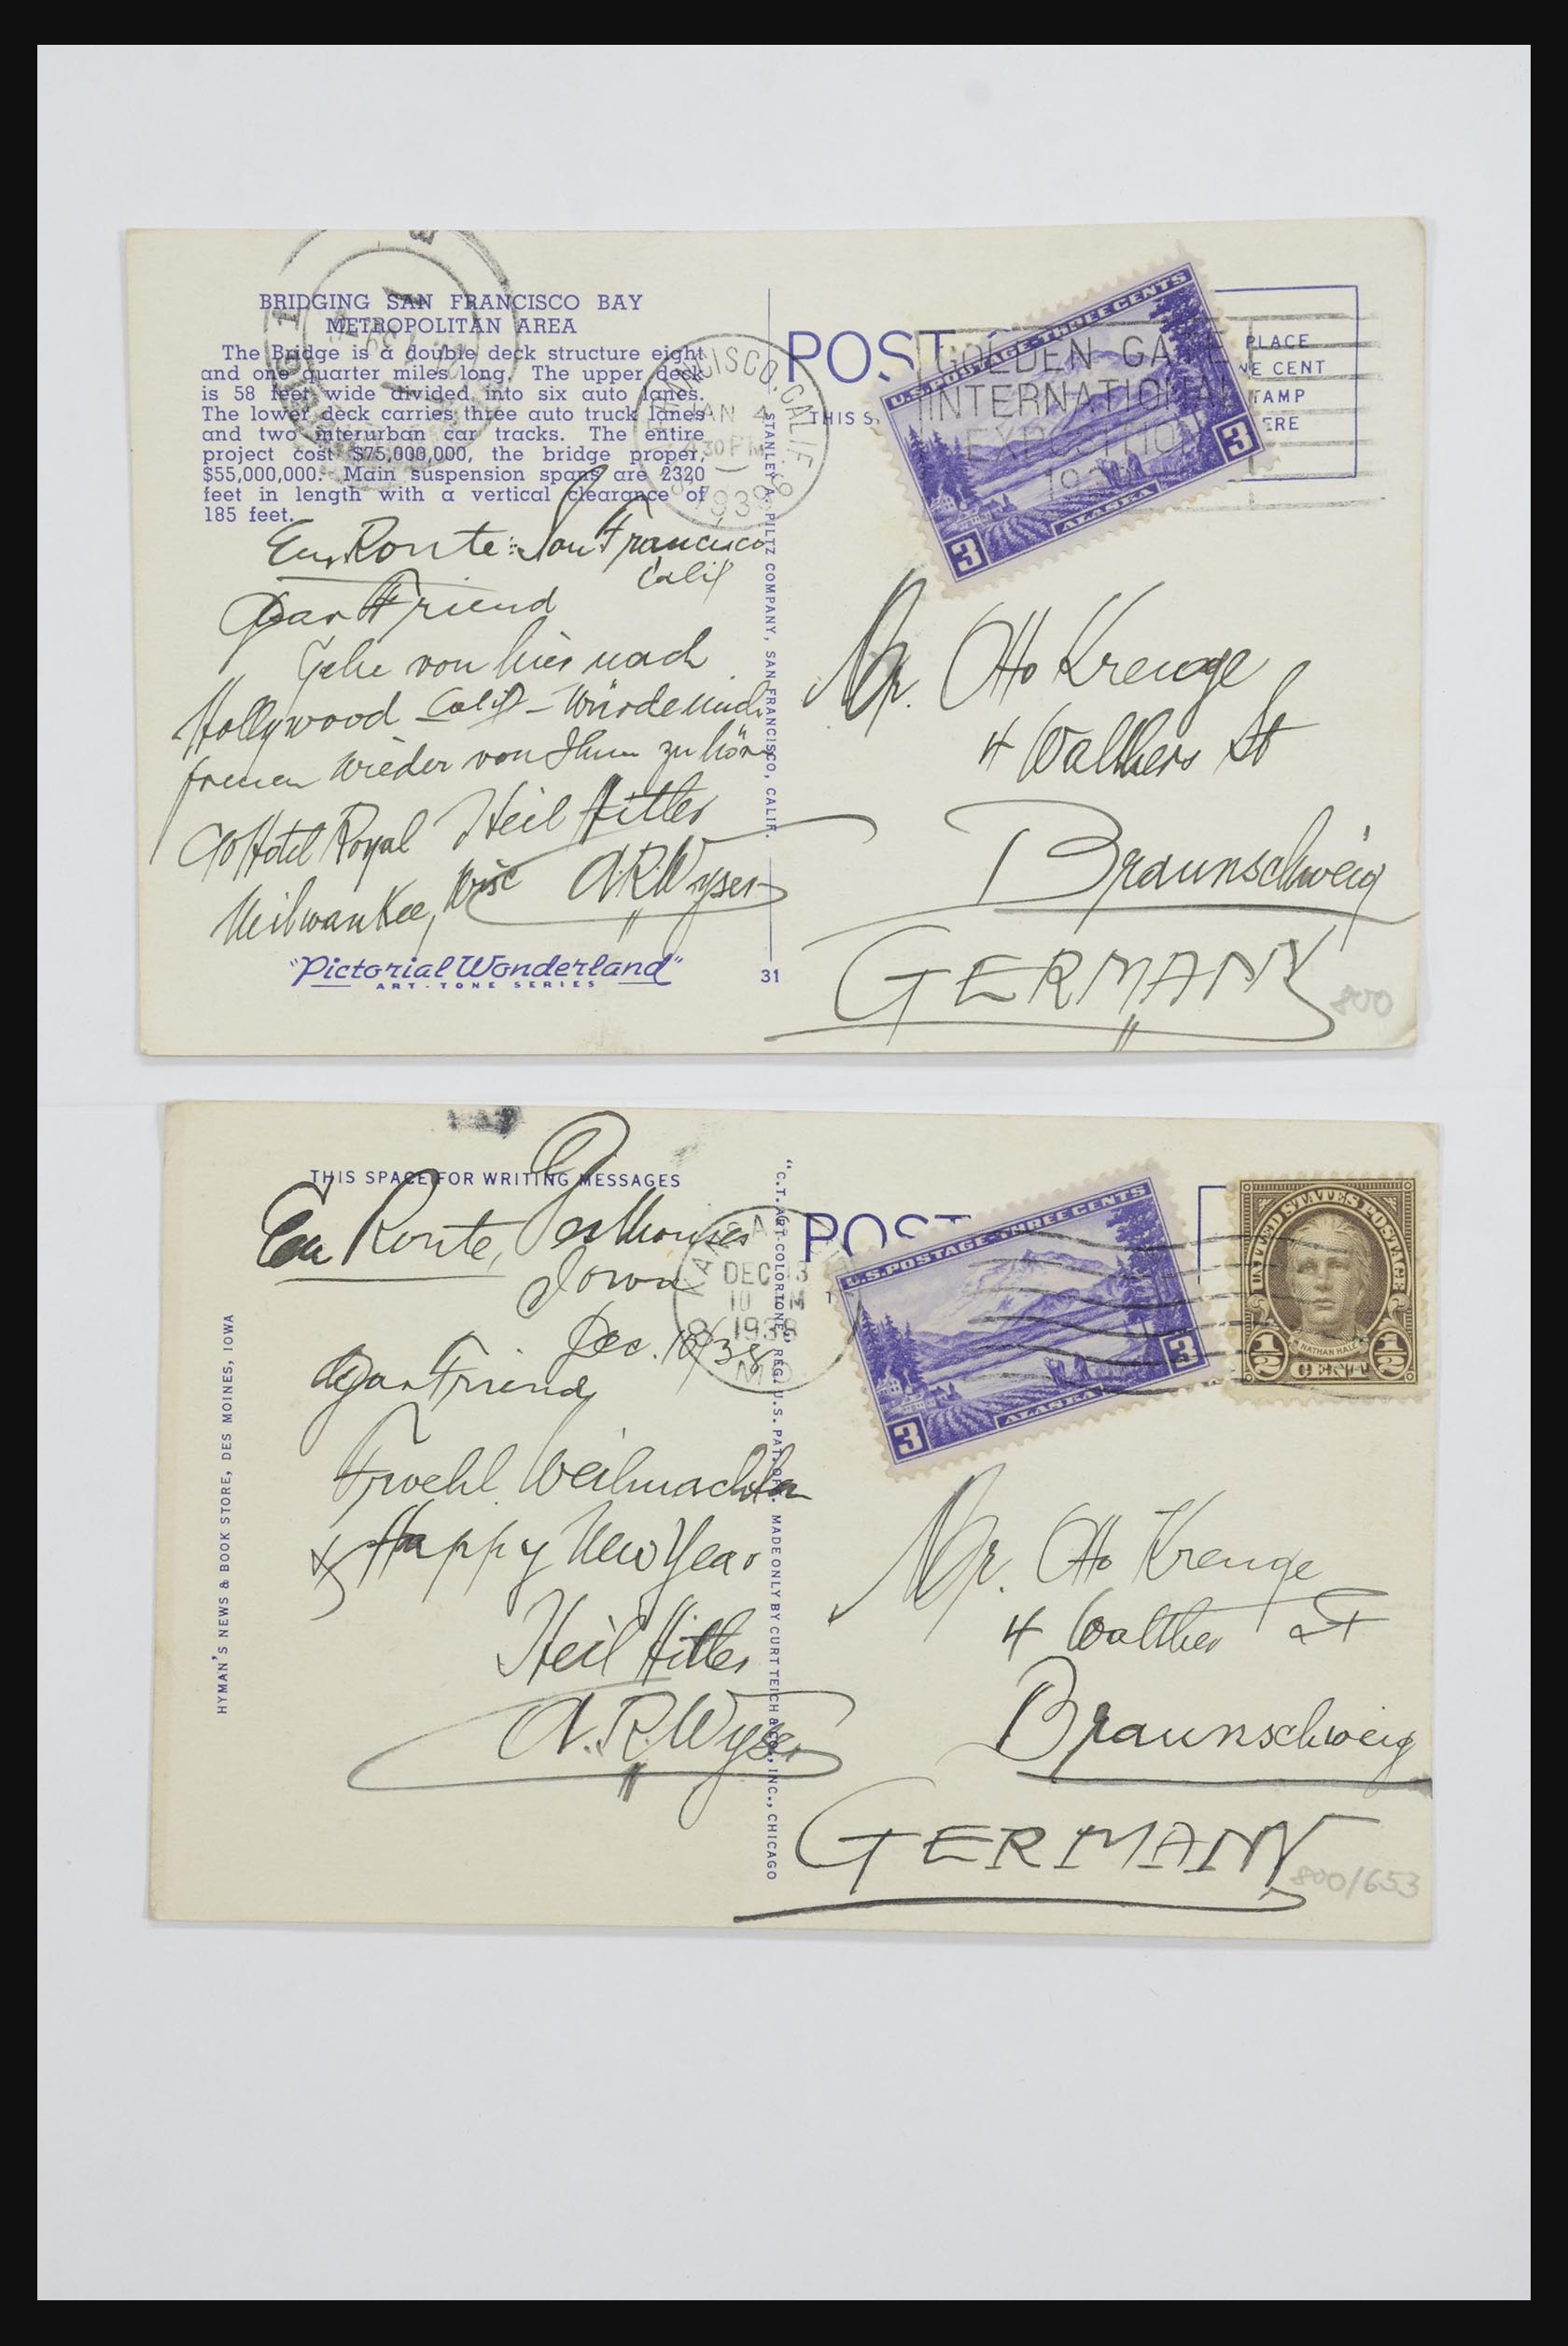 BRIDGING SAN FRANCISCO BAY
METROPOLITAN AREA
The Bridge is a double deck structure eight
and one quarter miles long. The upper deck
is 58 feet wide divided into six auto lanes.
The lower deck carries three auto truck lanes
and two interurban car tracks. The entire
project cost $75,000,000, the bridge proper,
$55,000,000. Main suspension spans are 2320
feet in length with a vertical clearance of
185 feet.
En Route: San Francisco
Calif
Dear Friend
Gehe von hier nach
Hollywood Calif - Würde mich
freuen wieder von Ihnen zu hören
Heil Hitler
C/o Hotel Royal
Milwaukee, Wisc
A.R.Wyser
"Pictorial Wonderland"
ART-TONE SERIES
31
STANLEY A. PILTZ COMPANY, SAN FRANCISCO, CALIF.
FRANCISCO, CALIF.
JAN 4
30 PM
193
POST
THIS S
GOLDEN GATE
INTERNATIONAL
EXPOSITION
193
U.S. POSTAGE-THREE CENTS
3
3
ALASKA
PLACE
NE CENT
TAMP
ERE
Mr. Otto Krenge
4 Walthers St
Braunschweig
GERMANY
800
THIS SPACE FOR WRITING MESSAGES
En Route, Desmoines
Iowa
Dec. 10/38
Dear Friend
Froehl Weihnachten
& Happy New Year
Heil Hitler
A.R.Wyser
HYMAN'S NEWS & BOOK STORE, DES MOINES, IOWA
"C.T. ART-COLORTONE" REG. U.S. PAT. OFF. MADE ONLY BY CURT TEICH & CO., INC., CHICAGO
KANSA
DEC 13
10 M
1938
MO
POST
U.S.POSTAGE-THREE CENTS
3
3
ALASKA
UNITED STATES POSTAGE
NATHAN HALE
1/2 CENT 1/2
Mr. Otto Krenge
4 Walther St
Braunschweig
GERMANY
800/653